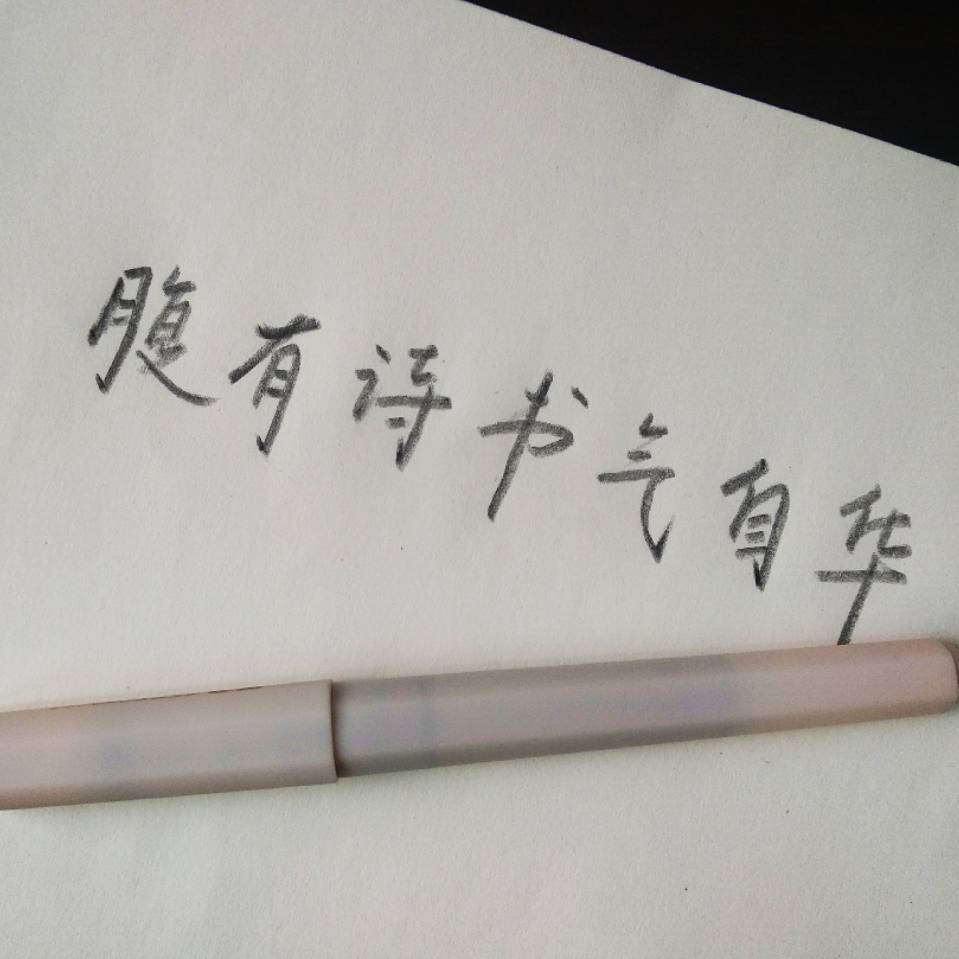 腹有诗书气自华